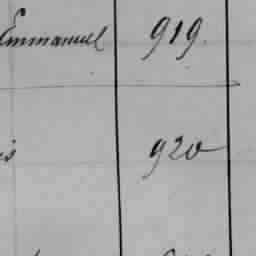 Emmanuel 919.
is 920